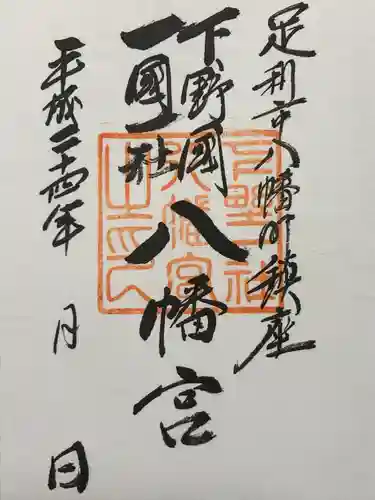 足利市八幡町鎮座
下野國
一國一社
八幡宮
平成二十四年 月 日
下野一社
八幡宮
之印